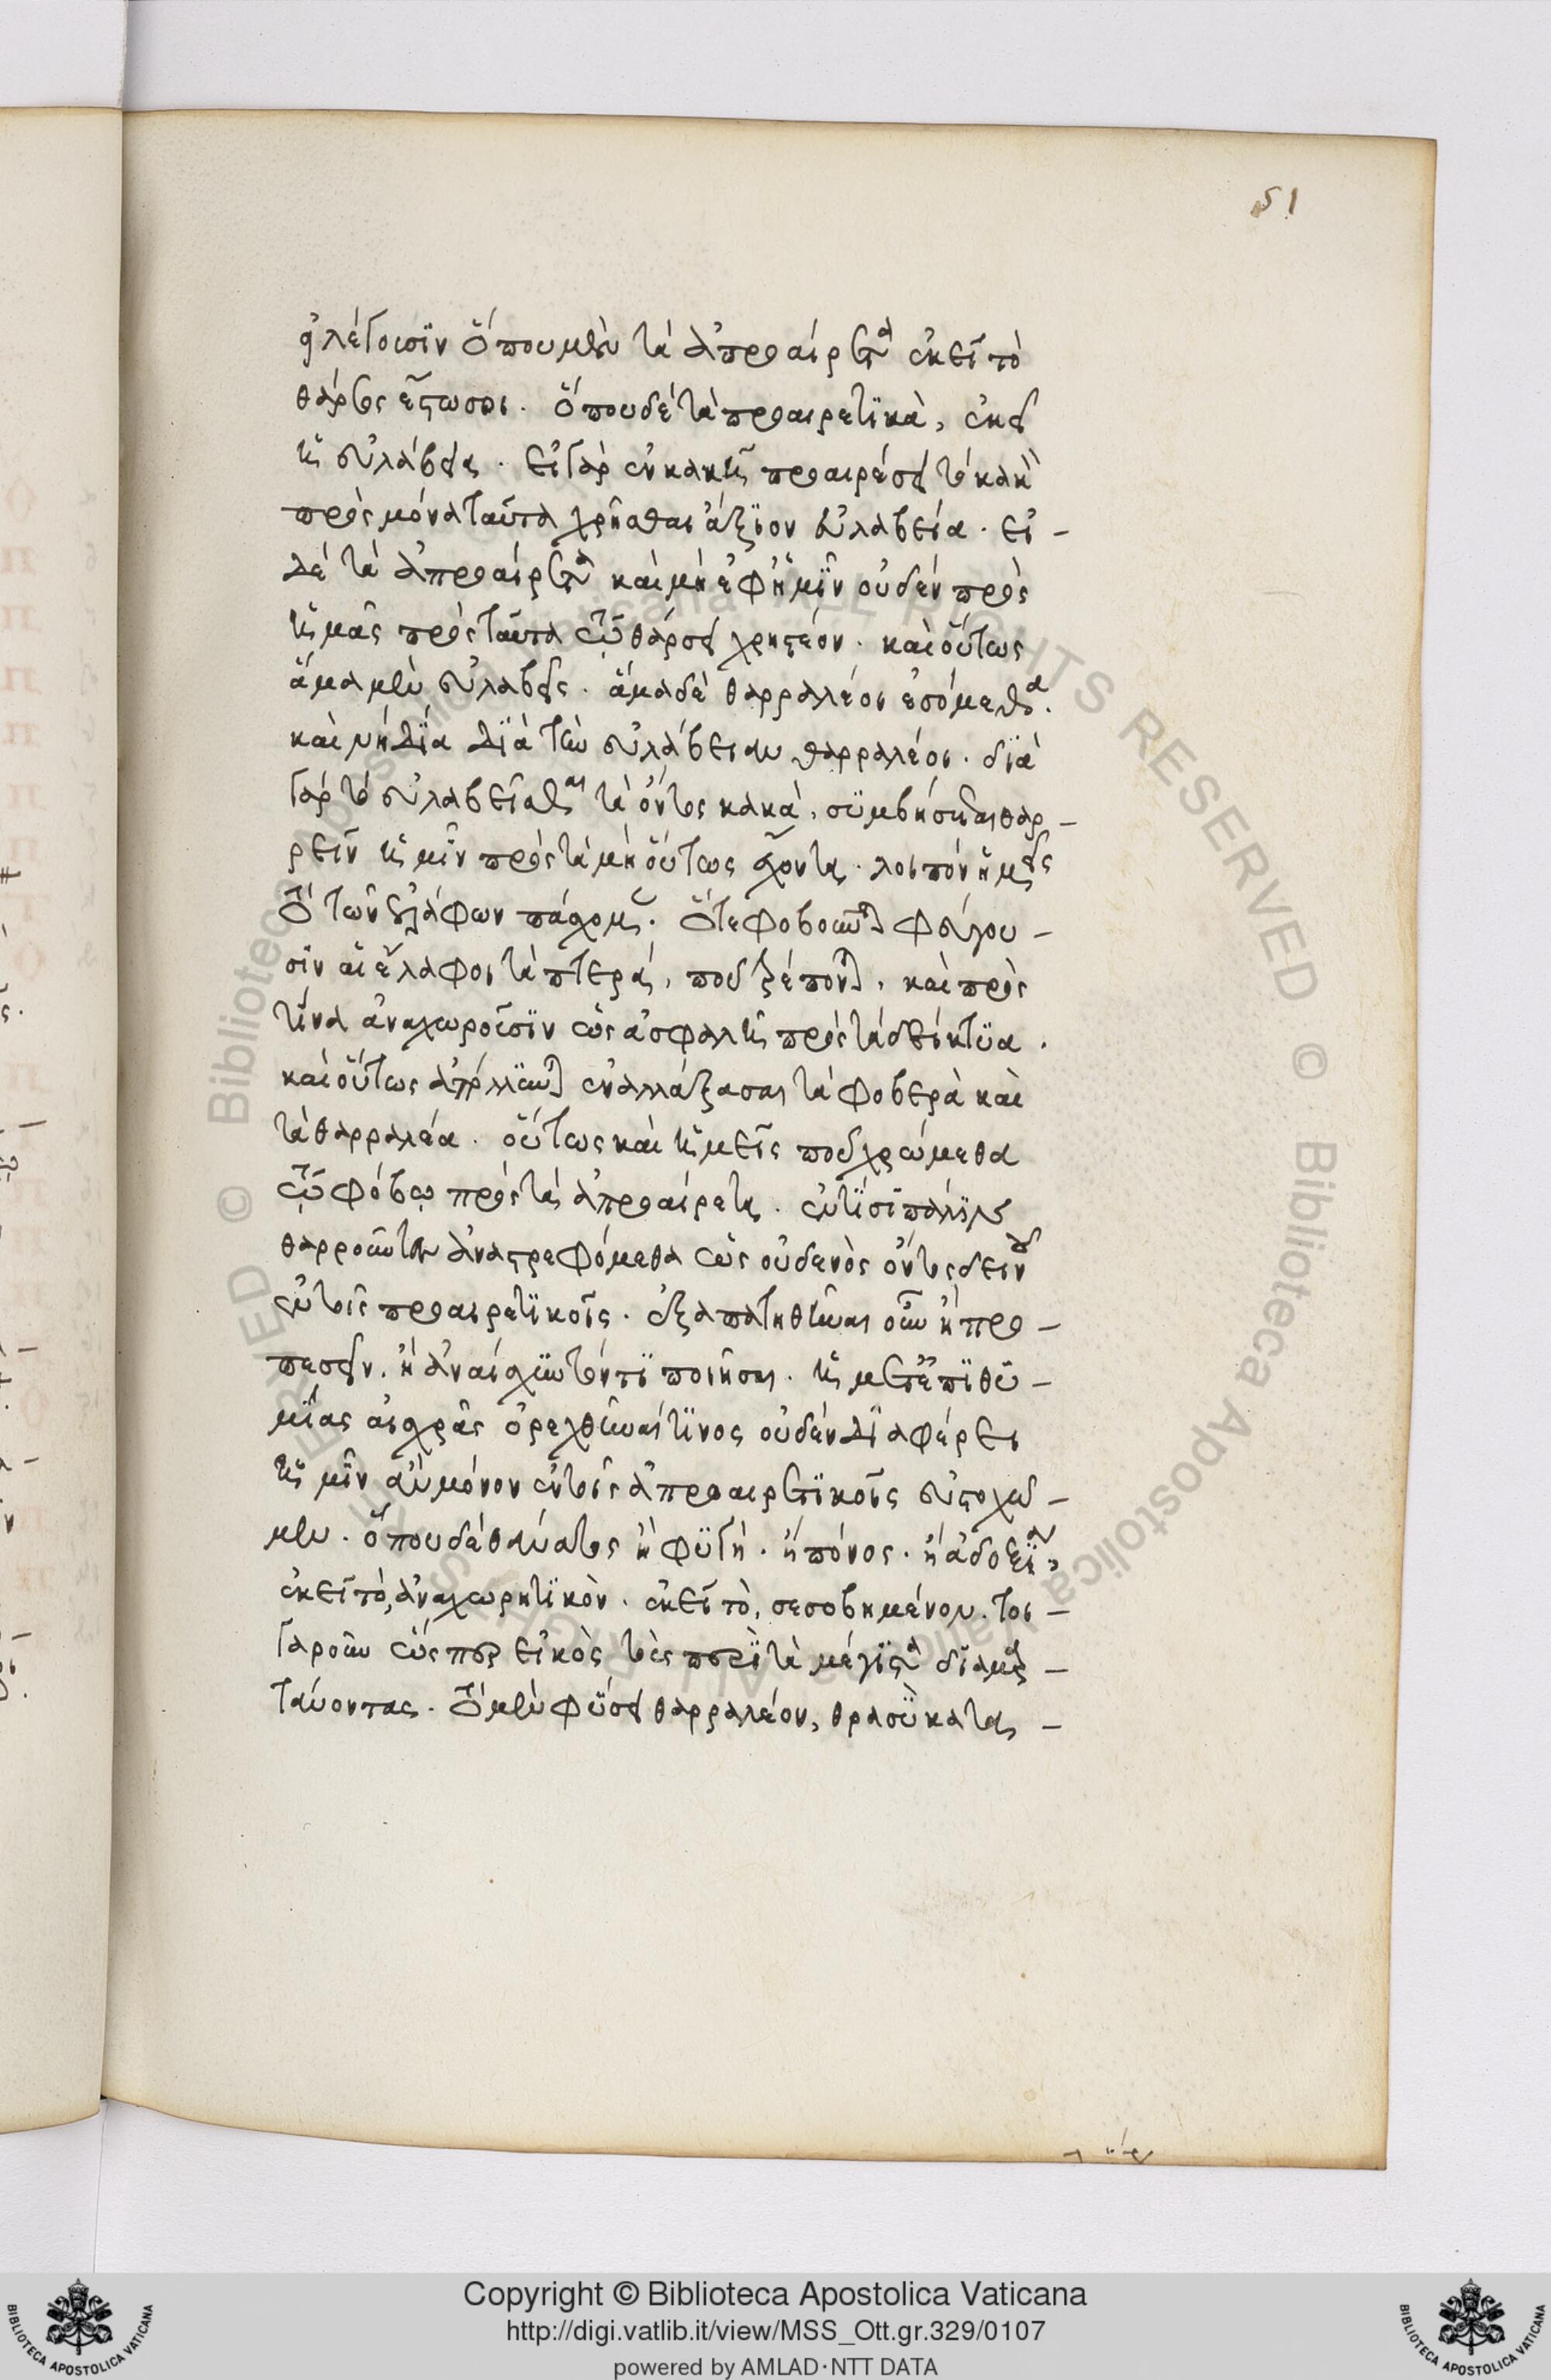 51
οἱ λέγουσιν ὅπου μὲν τὰ ἀπροαίρετα ἐκεῖ τὸ
θάρσος ἔστωσοι. ὅπου δὲ τὰ προαιρετικὰ, ἐκεῖ
ἡ εὐλάβεια. εἰ γὰρ ἐν κακῇ προαιρέσει τὸ κακὸν
πρὸς μόνα ταῦτα χρῆσθαι ἄξιον εὐλαβεία. εἰ –
δὲ τὰ ἀπροαίρετα καὶ μὴ ἐφ ἡμῖν οὐδὲν πρὸς
ἡμᾶς πρὸς ταῦτα τῷ θάρσει χρηστέον. καὶ οὕτως
ἅμα μὲν εὐλαβεῖς. ἅμα δὲ θαρραλέοι ἐσόμεθα.
καὶ νὴ Δία διὰ τὴν εὐλάβειαν θαρραλέοι. διὰ
γὰρ τὸ εὐλαβεῖσθαι τὰ ὄντως κακὰ, συμβήσεται θαρ –
ρεῖν ἡμῖν πρὸς τὰ μὴ οὕτως ἔχοντα. λοιπὸν ἡμεῖς
τὸ τῶν ἐλάφων πάσχομεν. ὅτε φοβοῦνται φεύγου –
σιν αἱ ἔλαφοι τὰ πτερά, ποῦ τρέπονται, καὶ πρὸς
τίνα ἀναχωροῦσιν ὡς ἀσφαλῆ πρὸς τὰ δίκτυα.
καὶ οὕτως ἀπόλλυνται ἐναλλάξασαι τὰ φοβερὰ καὶ
τὰ θαρραλέα. οὕτως καὶ ἡμεῖς ποῦ χρώμεθα
τῷ φόβῳ πρὸς τὰ ἀπροαίρετα. ἐν τίσι πάλιν
θαρροῦντες ἀναστρεφόμεθα ὡς οὐδενὸς ὄντος δεινοῦ
ἐν τοῖς προαιρετικοῖς. ἐξαπατηθῆναι οὖν ἢ προ –
πεσεῖν. ἢ ἀναίσχυντόν τι ποιῆσαι. ἢ μετ ἐπιθυ –
μίας αἰσχρᾶς ὀρεχθῆναι τινος οὐδὲν διαφέρει
ἡμῖν ἂν μόνον ἐν τοῖς ἀπροαιρετικοῖς εὐστοχῶ –
μεν. ὅπου δὲ θάνατος ἢ φυγὴ. ἢ πόνος. ἢ ἀδοξία,
ἐκεῖ τὸ, ἀναχωρητικὸν. ἐκεῖ τὸ, σεσοβημένον. τοι –
γαροῦν ὥσπερ εἰκὸς τοὺς περὶ τὰ μέγιστα διαμαρ –
τάνοντας. τὸ μὲν φύσει θαρραλέον, θρασὺ κατας –
Copyright © Biblioteca Apostolica Vaticana
http://digi.vatlib.it/view/MSS_Ott.gr.329/0107
powered by AMLAD·NTT DATA